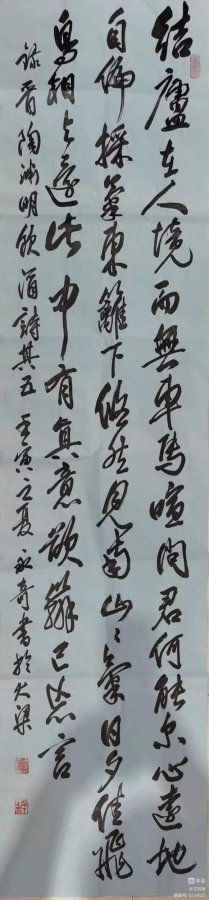 結廬在人境而無車馬喧問君何能尔心遠地
自偏採菊東籬下悠然見南山〻氣日夕佳飛
鳥相与還此中有真意欲辯已忘言
錄晋陶渊明飲酒詩其五 壬寅之夏永書於大梁
美篇